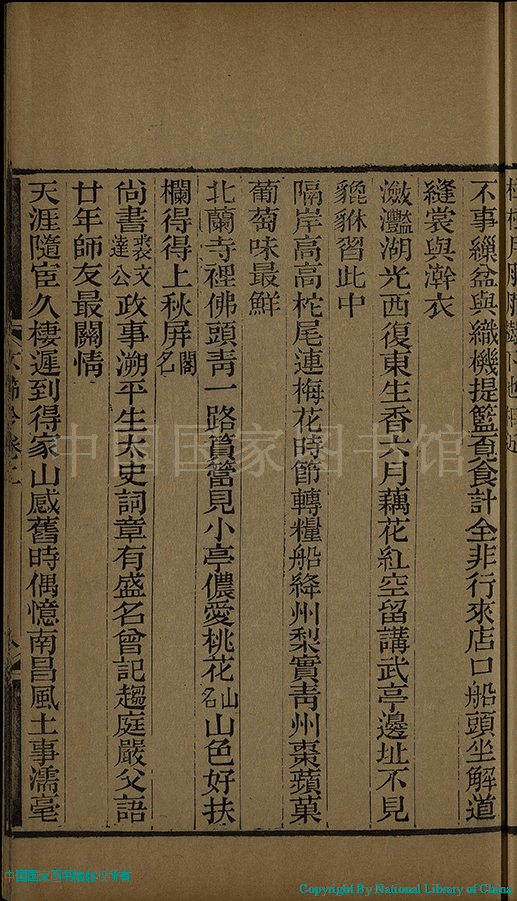 不事繅盆與織機提籃覔食計全非行來店口船頭坐解道
縫裳與澣衣
瀲灩湖光西復東生香六月藕花紅空留講武亭邊址不見
貔貅習此中
隔岸高高柁尾連梅花時節轉糧船絳州梨實靑州棗蘋菓
葡萄味最鮮
北蘭寺裡佛頭靑一路篔簹見小亭儂愛桃花山名山色好扶
欄得得上秋屏閣名
尙書裘文達公政事溯平生太史詞章有盛名曾記趨庭嚴父語
廿年師友最關情
天涯隨宦久棲遲到得家山感舊時偶憶南昌風土事濡毫
中国国家图书馆
中国国家图书馆
Copyright By National Library of China